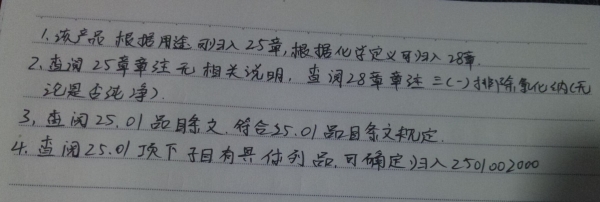 1.该产品根据用途可归入25章,根据化学定义可归入28章.
2.查阅25章章注无相关说明,查阅28章章注三(一)排除氯化钠(无
论是否纯净)
3,查阅25.01品目条文.符合25.01品目条文规定.
4.查阅25.01项下子目有具体列品,可确定归入2501002000